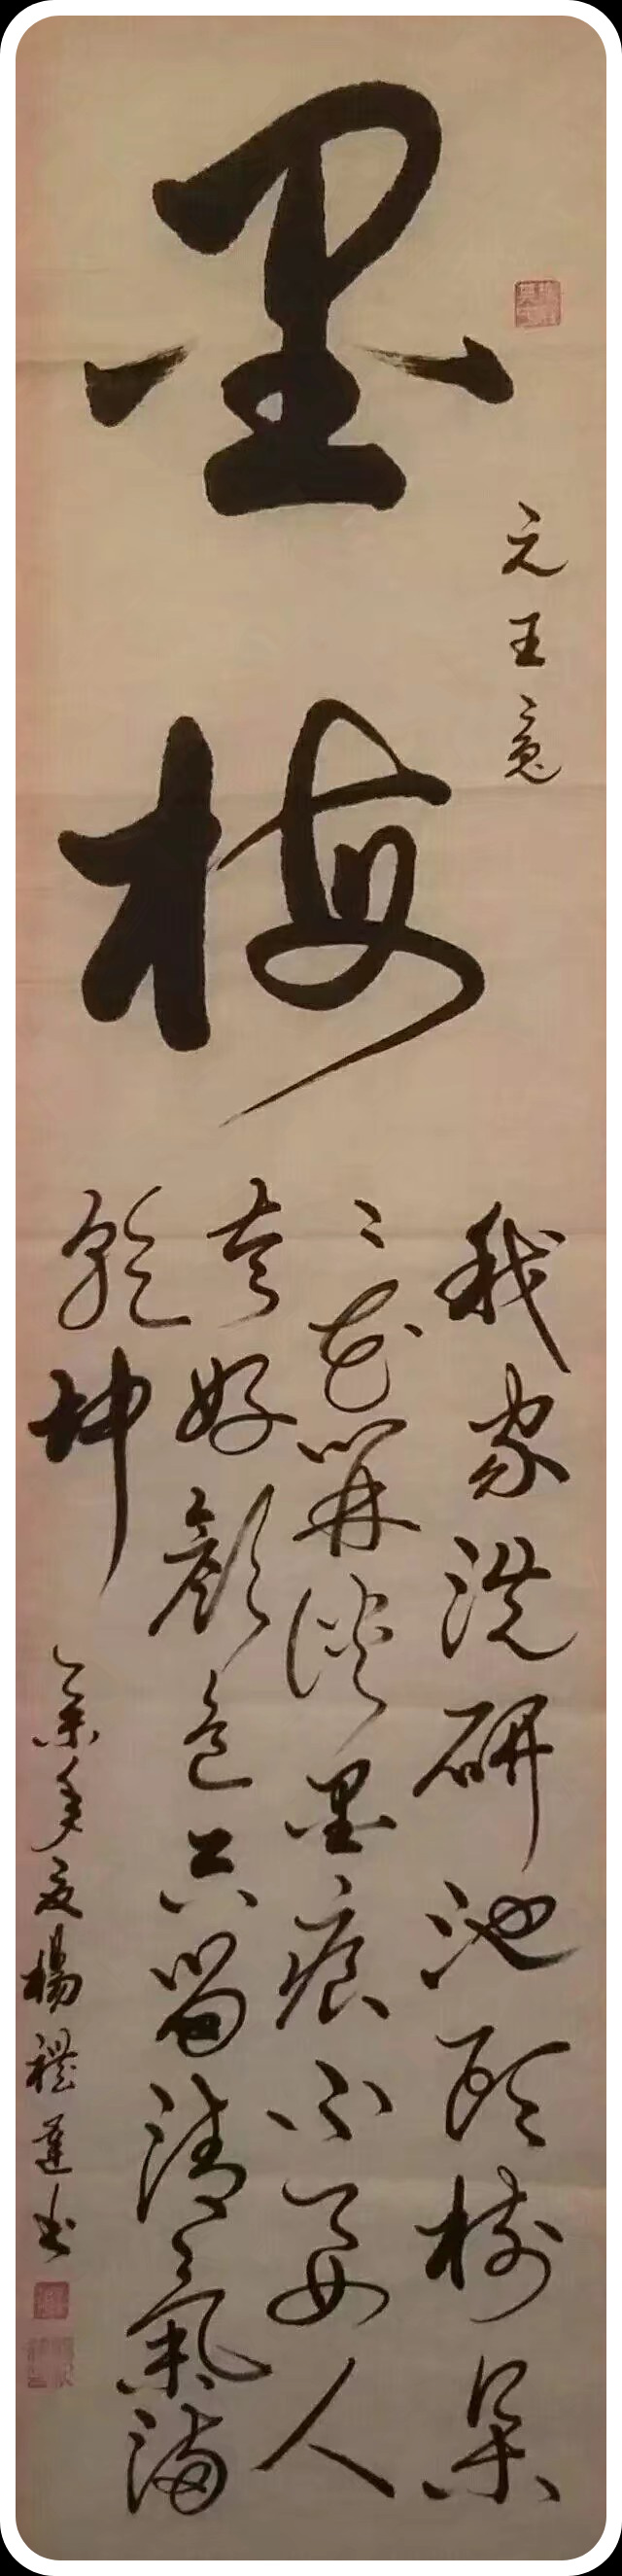 墨梅
元王冕
我家洗研池頭樹朵
〻花開淡墨痕不要人
夸好顏色只留清氣滿
乾坤
楊禮蓮书